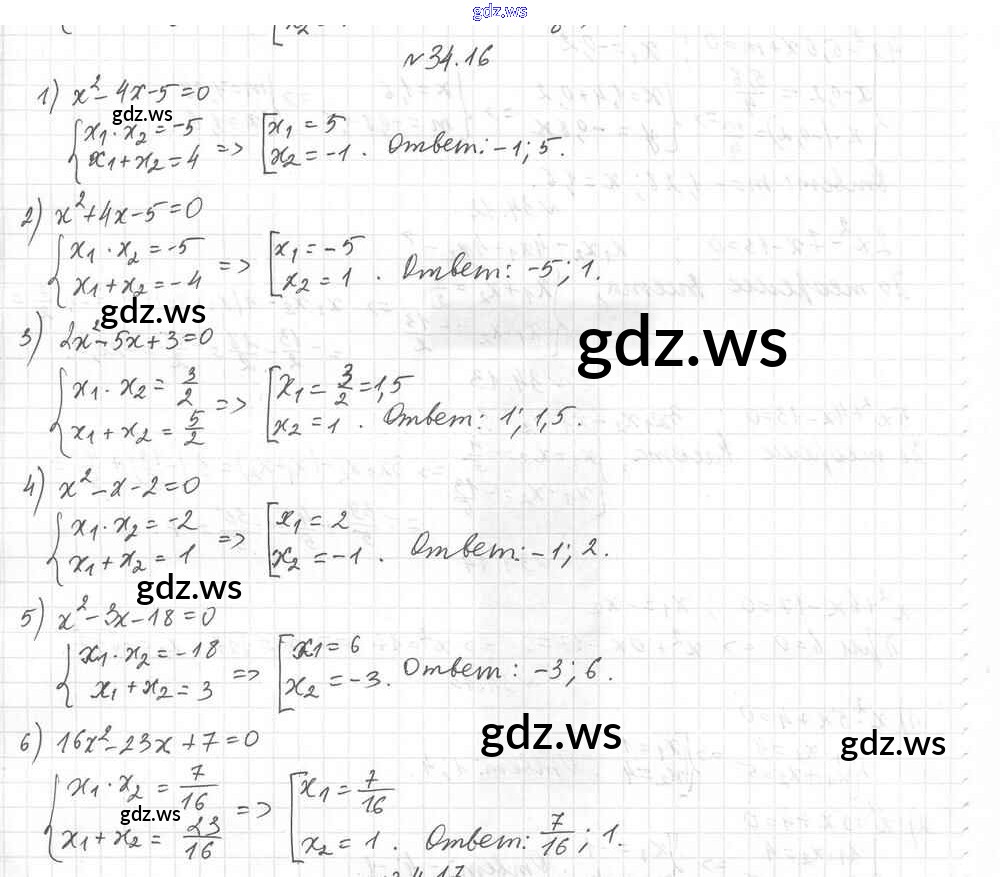 gdz.ws
№34.16
1) x² - 4x - 5 = 0
gdz.ws
{ x₁ · x₂ = -5
x₁ + x₂ = 4 => [ x₁ = 5
x₂ = -1 . Ответ: -1; 5.
2) x² + 4x - 5 = 0
{ x₁ · x₂ = -5
x₁ + x₂ = -4 => [ x₁ = -5
x₂ = 1 . Ответ: -5; 1.
gdz.ws
3) 2x² - 5x + 3 = 0
gdz.ws
{ x₁ · x₂ = 3/2
x₁ + x₂ = 5/2 => [ x₁ = 3/2 = 1,5
x₂ = 1 . Ответ: 1; 1,5.
4) x² - x - 2 = 0
{ x₁ · x₂ = -2
x₁ + x₂ = 1 => [ x₁ = 2
x₂ = -1 . Ответ: -1; 2.
gdz.ws
5) x² - 3x - 18 = 0
{ x₁ · x₂ = -18
x₁ + x₂ = 3 => [ x₁ = 6
x₂ = -3. Ответ: -3; 6.
6) 16x² - 23x + 7 = 0
gdz.ws
gdz.ws
{ x₁ · x₂ = 7/16
gdz.ws
x₁ + x₂ = 23/16 => [ x₁ = 7/16
x₂ = 1 . Ответ: 7/16; 1.